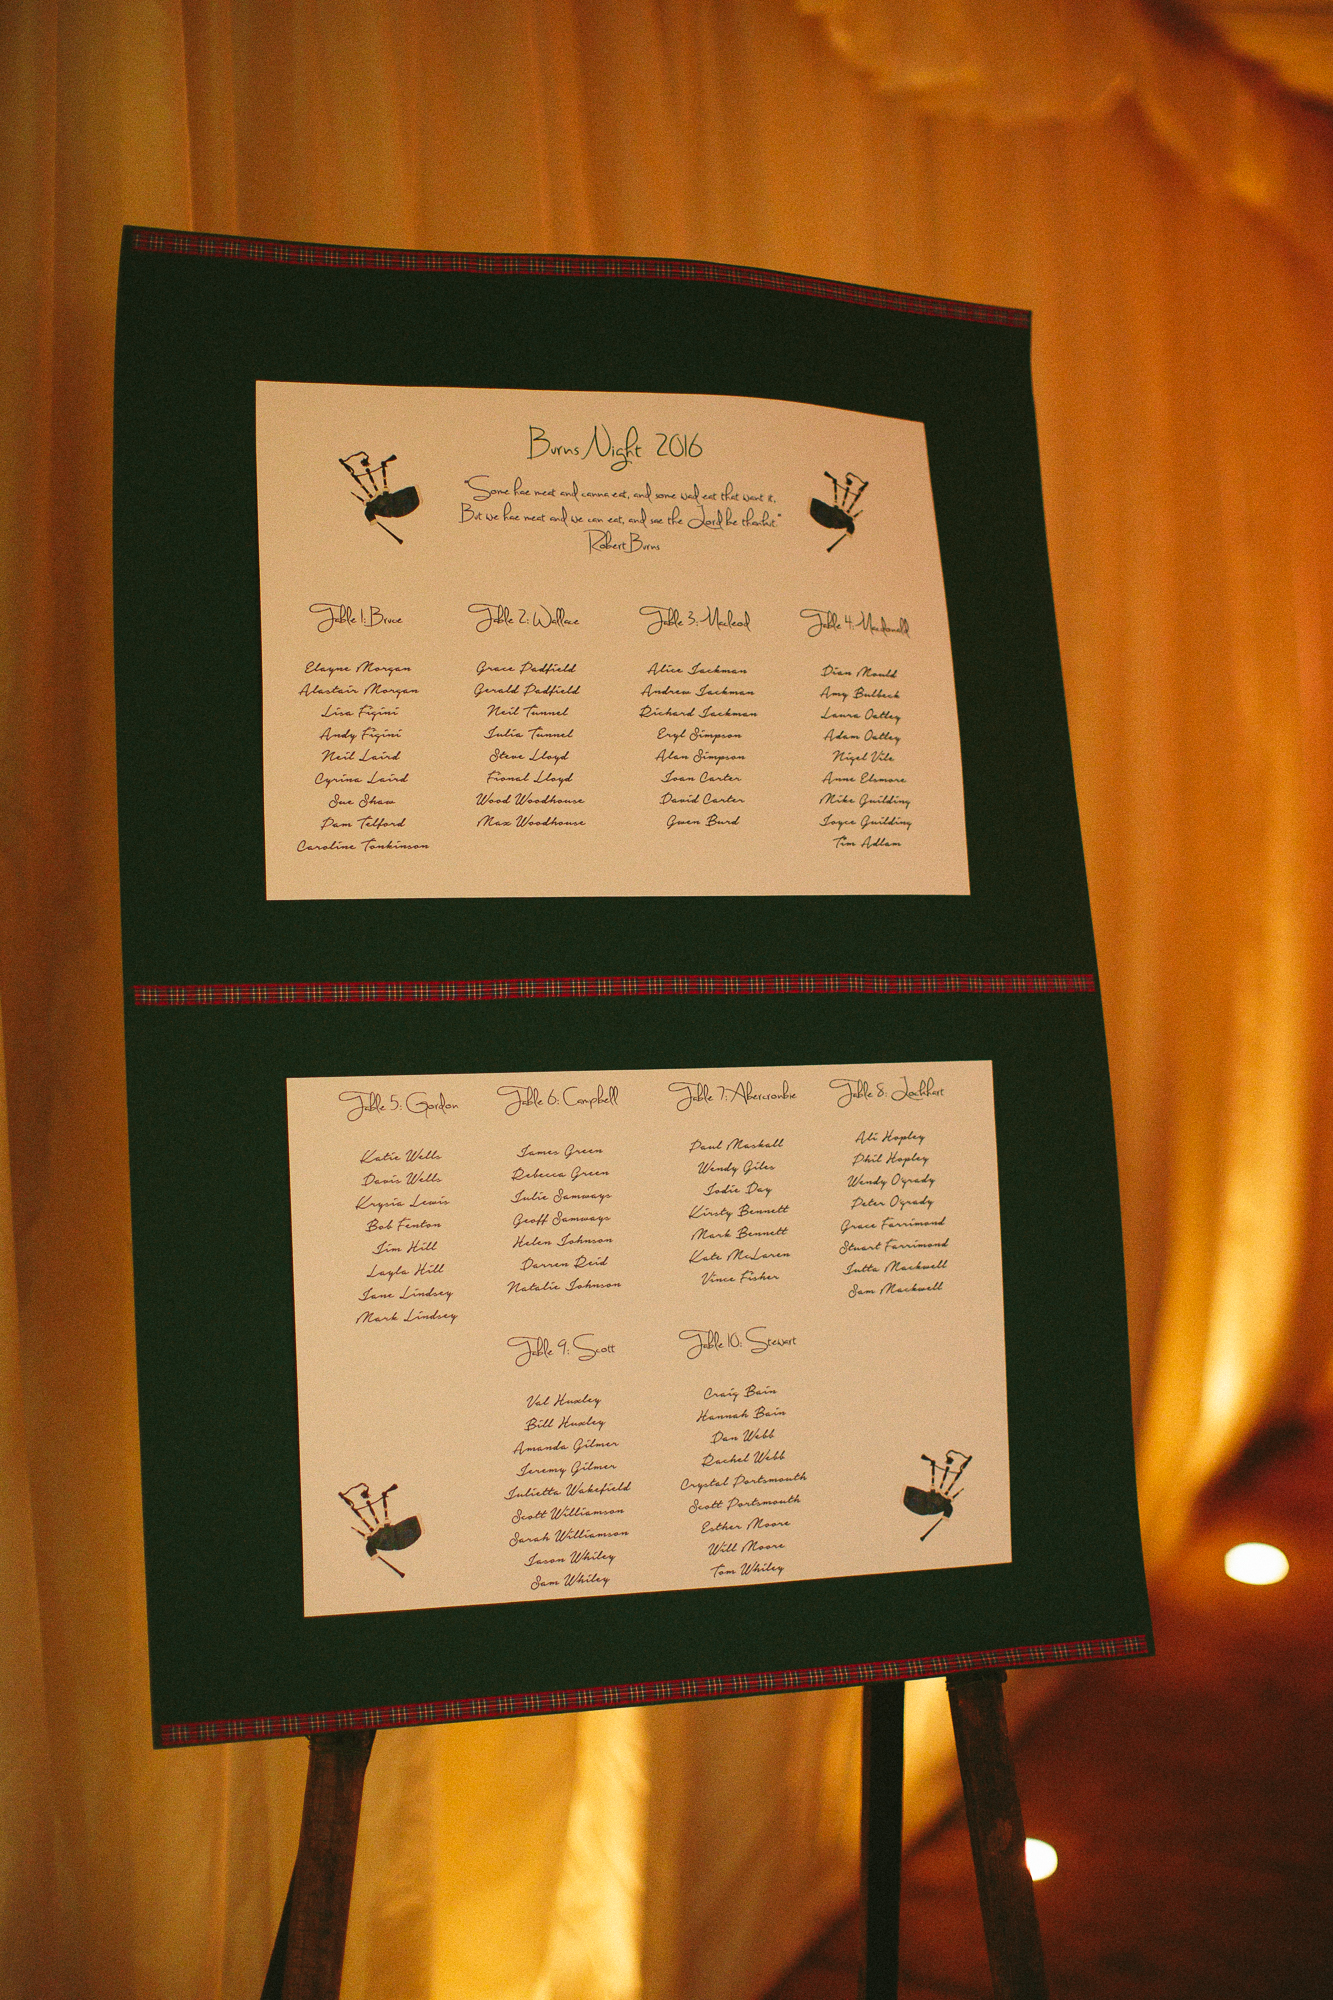 Burns Night 2016
"Some hae meat and canna eat, and some wad eat that want it,
But we hae meat and we can eat, and sae the Lord be thankit."
Robert Burns
Table 1: Bruce
Elayne Morgan
Alastair Morgan
Lisa Figini
Andy Figini
Neil Laird
Cyrina Laird
Sue Shaw
Pam Telford
Caroline Tonkinson
Table 2: Wallace
Grace Padfield
Gerald Padfield
Neil Tunnel
Julia Tunnel
Steve Lloyd
Fional Lloyd
Wood Woodhouse
Max Woodhouse
Table 3: Macleod
Alice Jackman
Andrew Jackman
Richard Jackman
Eryl Simpson
Alan Simpson
Joan Carter
David Carter
Gwen Burd
Table 4: Macdonald
Dian Mould
Amy Bulbeck
Laura Oatley
Adam Oatley
Nigel Vile
Anne Elsmore
Mike Guilding
Joyce Guilding
Tim Adlam
Table 5: Gordon
Katie Wells
Davis Wells
Krysia Lewis
Bob Fenton
Jim Hill
Layla Hill
Jane Lindsey
Mark Lindsey
Table 6: Campbell
James Green
Rebecca Green
Julie Samways
Geoff Samways
Helen Johnson
Darren Reid
Natalie Johnson
Table 7: Abercronbie
Paul Maskall
Wendy Giles
Jodie Day
Kirsty Bennett
Mark Bennett
Kate McLaren
Vince Fisher
Table 8: Lockhart
Ali Hopley
Phil Hopley
Wendy Ogrady
Peter Ogrady
Grace Farrimond
Stuart Farrimond
Jutta Mackwell
Sam Mackwell
Table 9: Scott
Val Huxley
Bill Huxley
Amanda Gilmer
Jeremy Gilmer
Julietta Wakefield
Scott Williamson
Sarah Williamson
Jason Whiley
Sam Whiley
Table 10: Stewart
Craig Bain
Hannah Bain
Dan Webb
Rachel Webb
Crystal Portsmouth
Scott Portsmouth
Esther Moore
Will Moore
Tom Whiley